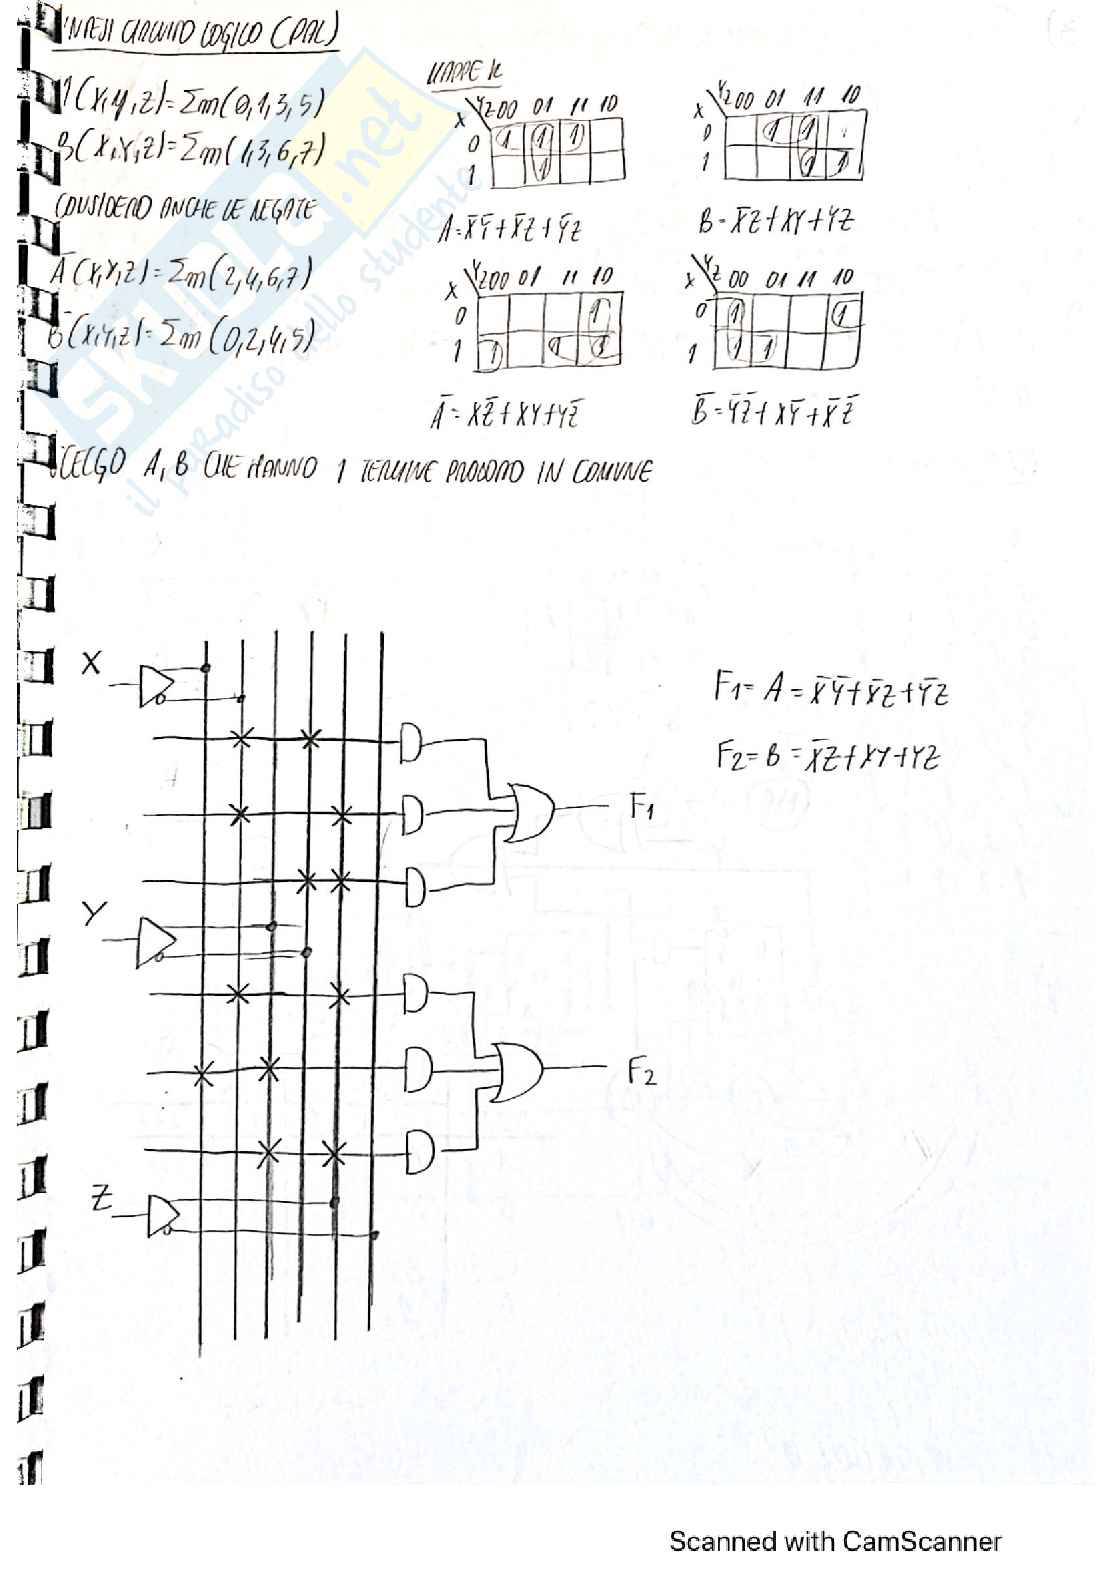 INTESI CIRCUITO LOGICO (PAL)
A(X,Y,Z)=Σm(0,1,3,5)
B(X,Y,Z)=Σm(1,3,6,7)
CONSIDERO ANCHE LE NEGATE
A̅(X,Y,Z)=Σm(2,4,6,7)
B̅(X,Y,Z)=Σm(0,2,4,5)
MAPPE K
X YZ 00 01 11 10
0 1 1 1
1 1
A=X̅Y̅+X̅Z+Y̅Z
X YZ 00 01 11 10
0 1 1
1 1 1
B=X̅Z+XY+YZ
X YZ 00 01 11 10
0 1
1 1 1 1
A̅=XZ̅+XY+YZ̅
X YZ 00 01 11 10
0 1 1
1 1 1
B̅=Y̅Z̅+XY̅+X̅Z̅
SCELGO A, B CHE HANNO 1 TERMINE PRODOTTO IN COMUNE
X
Y
Z
F1
F2
F1=A=X̅Y̅+X̅Z+Y̅Z
F2=B=X̅Z+XY+YZ
SKUOLA.net
il paradiso dello studente
Scanned with CamScanner